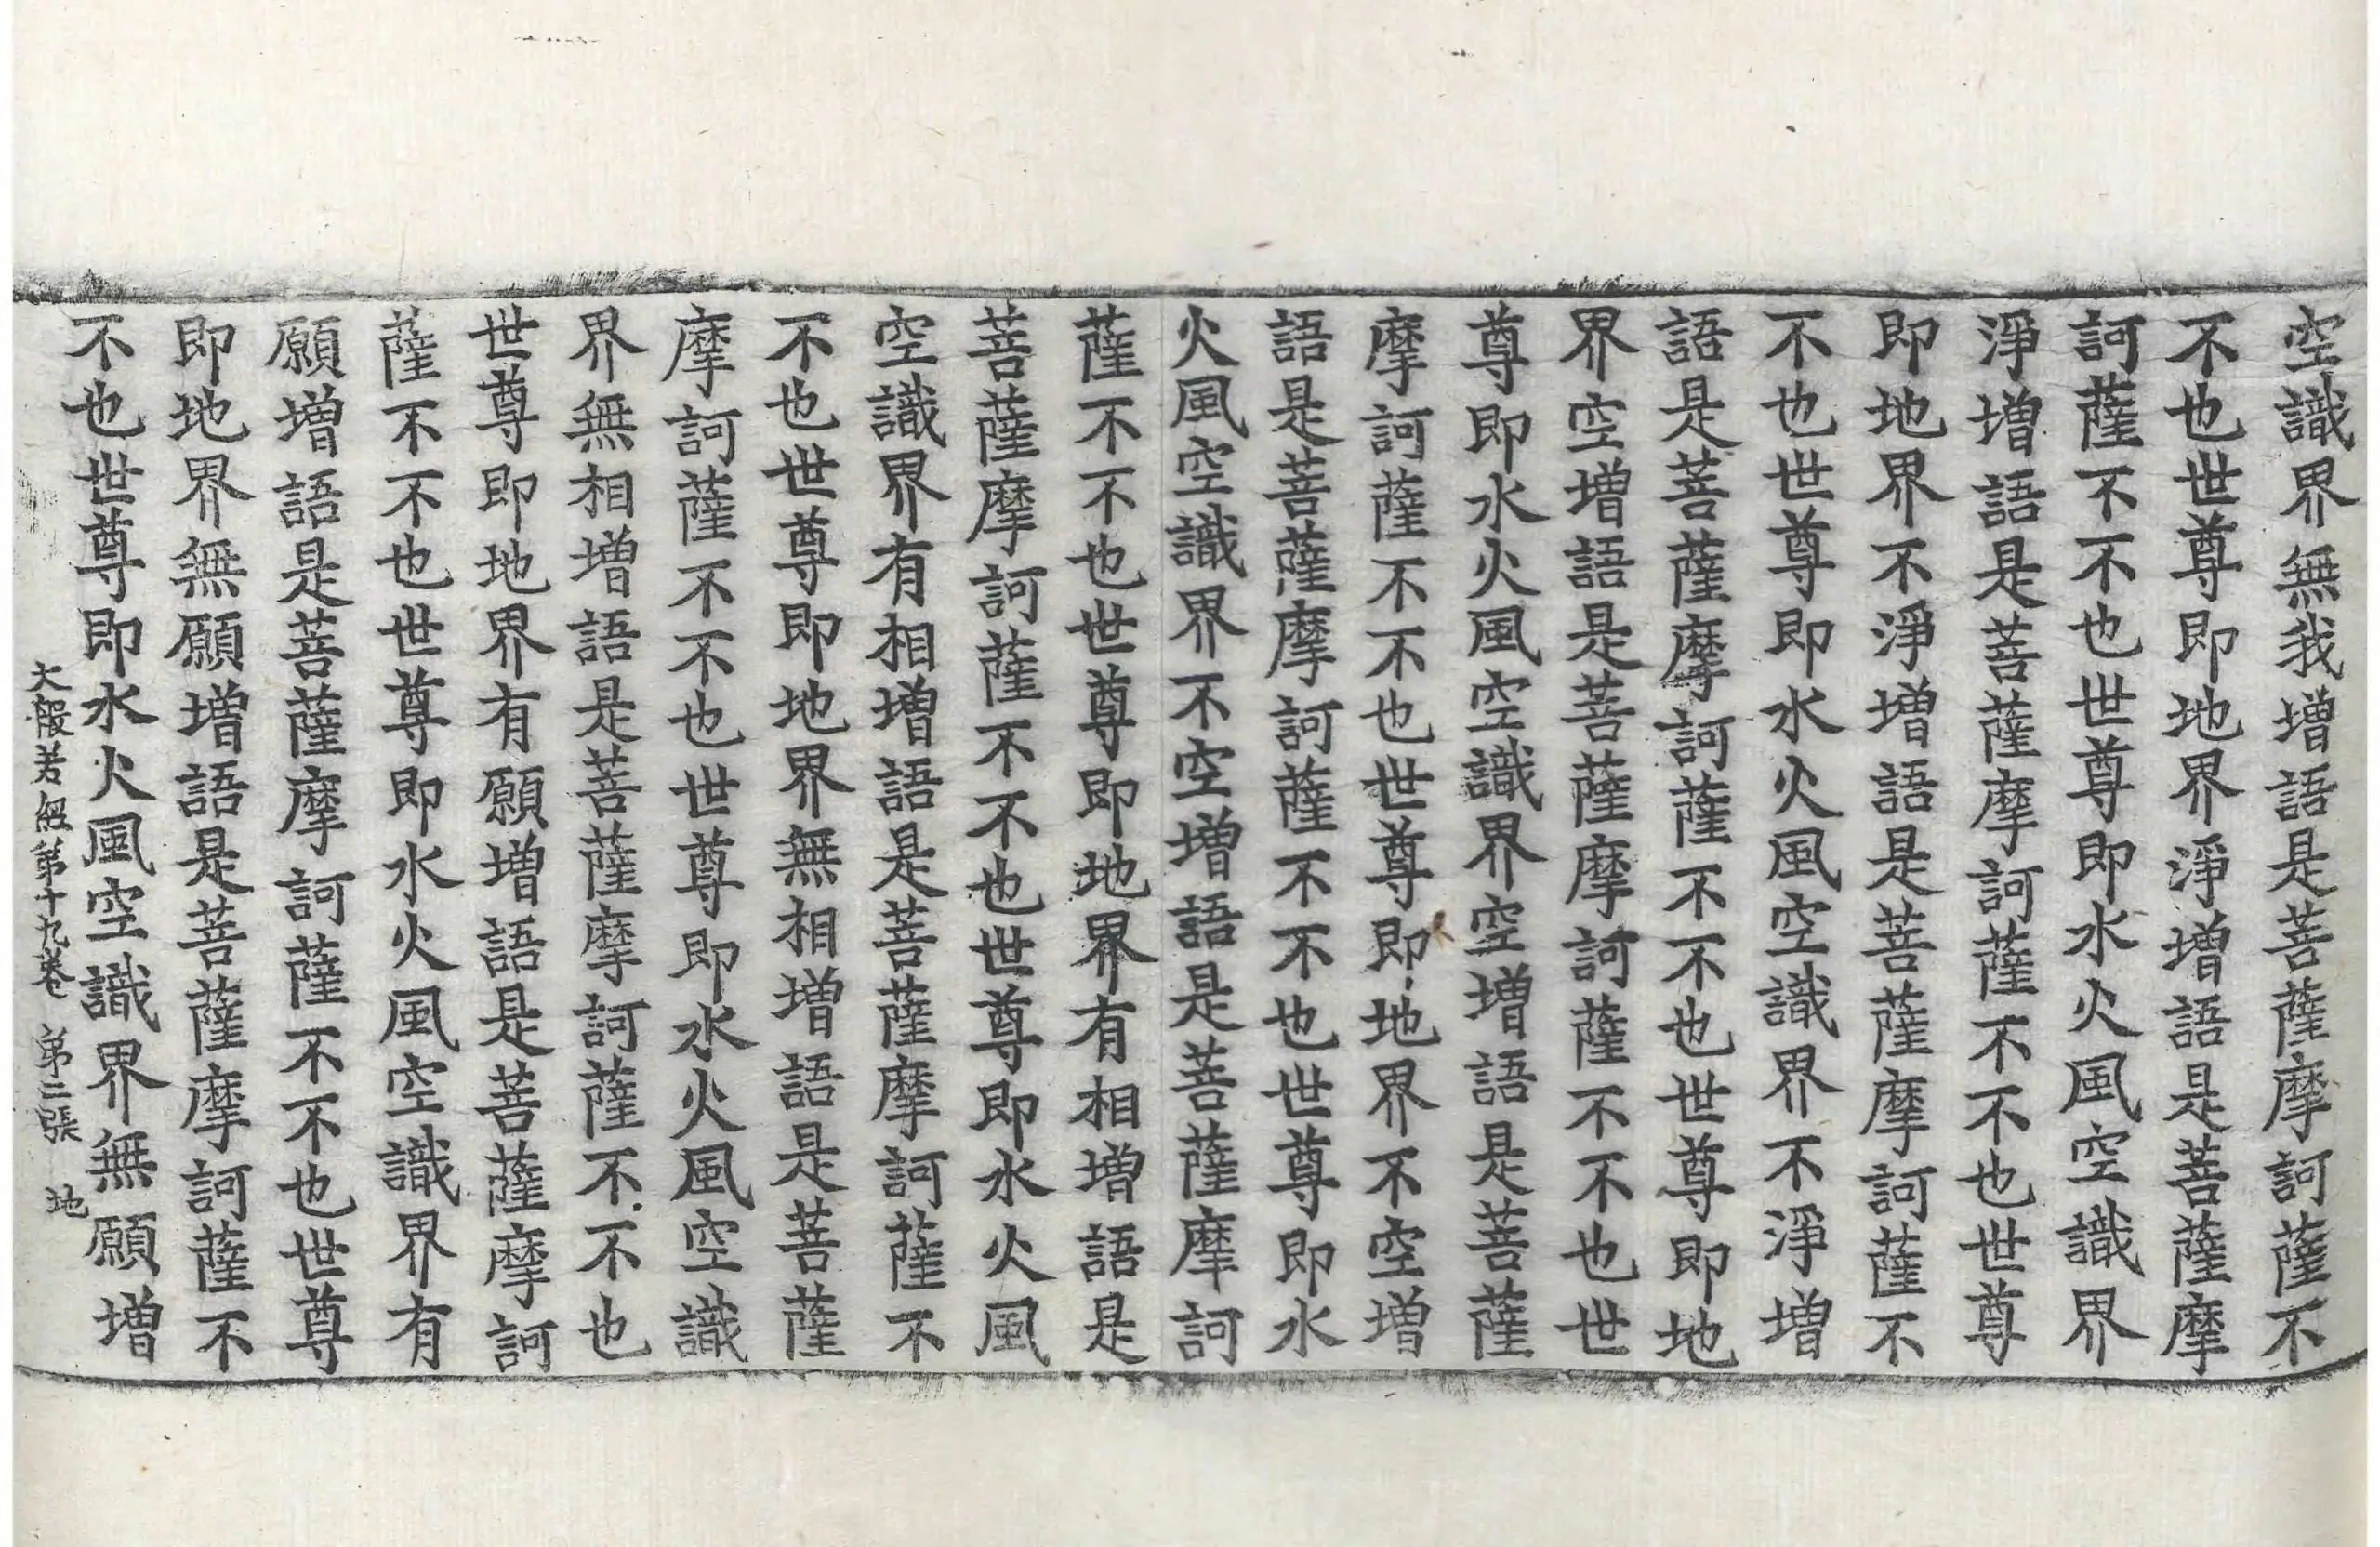 空識界無我增語是菩薩摩訶薩不
不也世尊即地界淨增語是菩薩摩
訶薩不不也世尊即水火風空識界
淨增語是菩薩摩訶薩不不也世尊
即地界不淨增語是菩薩摩訶薩不
不也世尊即水火風空識界不淨增
語是菩薩摩訶薩不不也世尊即地
界空增語是菩薩摩訶薩不不也世
尊即水火風空識界空增語是菩薩
摩訶薩不不也世尊即地界不空增
語是菩薩摩訶薩不不也世尊即水
火風空識界不空增語是菩薩摩訶
薩不不也世尊即地界有相增語是
菩薩摩訶薩不不也世尊即水火風
空識界有相增語是菩薩摩訶薩不
不也世尊即地界無相增語是菩薩
摩訶薩不不也世尊即水火風空識
界無相增語是菩薩摩訶薩不不也
世尊即地界有願增語是菩薩摩訶
薩不不也世尊即水火風空識界有
願增語是菩薩摩訶薩不不也世尊
即地界無願增語是菩薩摩訶薩不
不也世尊即水火風空識界無願增
大般若經第十九卷 第三張 地